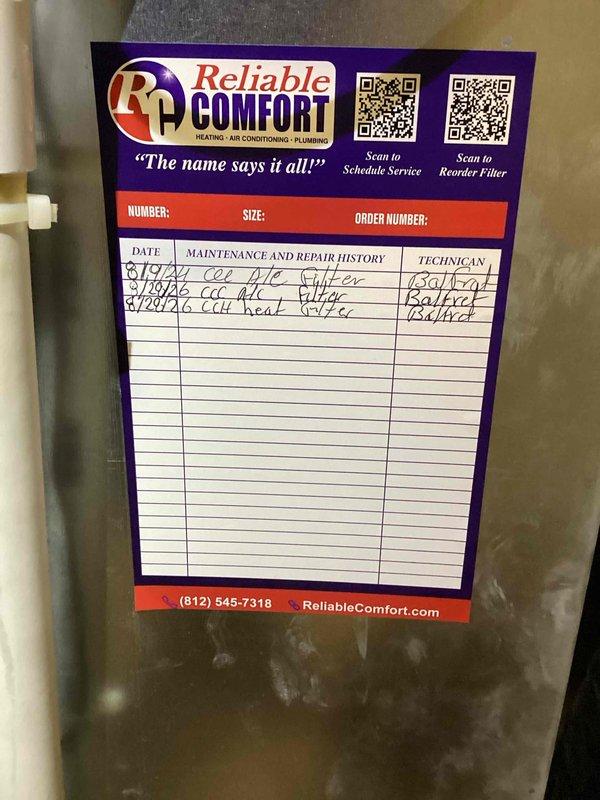 RC
Reliable
COMFORT
HEATING · AIR CONDITIONING · PLUMBING
"The name says it all!"
Scan to
Schedule Service
Scan to
Reorder Filter
NUMBER: SIZE: ORDER NUMBER:
DATE MAINTENANCE AND REPAIR HISTORY TECHNICAN
8/9/24 CCC A/C Filter
8/29/26 CCC A/C Filter Balfret
8/29/26 CCH heat Filter
(812) 545-7318 ReliableComfort.com